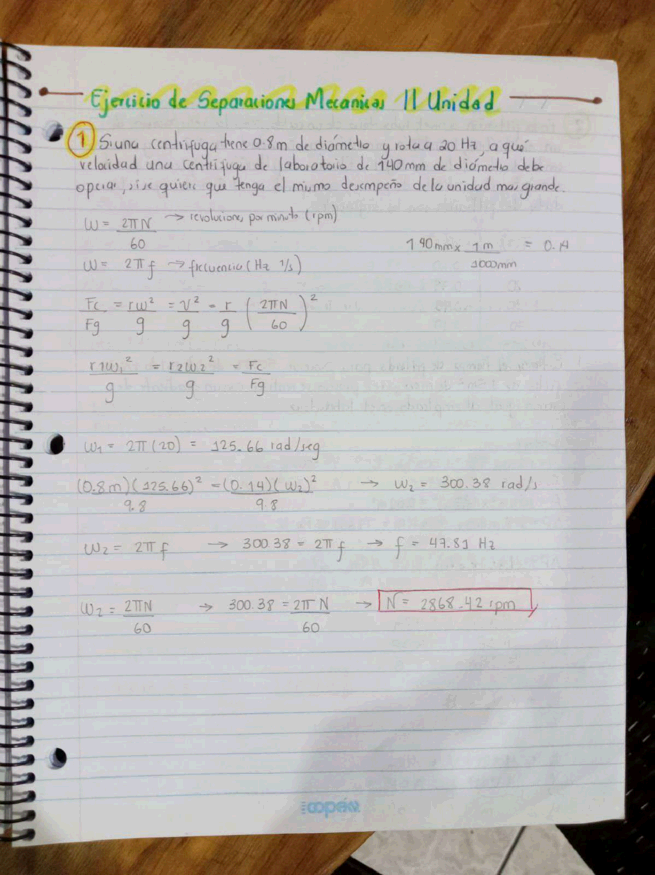 Ejercicio de Separaciones Mecanicas II Unidad
1 Si una centrifuga tiene 0.8m de diámetro y rota a 20 Hz, a que
velocidad una centrifuga de laboratorio de 140mm de diámetro debe
operar, si se quiere que tenga el mismo desempeño de la unidad mas grande.
ω = 2πN/60 → revoluciones por minuto (rpm)
140mm x 1m/1000mm = 0.14
ω = 2πf → frecuencia (Hz 1/s)
Fc/Fg = rω²/g = V²/g = r/g (2πN/60)²
r1ω1²/g = r2ω2²/g = Fc/Fg
ω1 = 2π(20) = 125.66 rad/seg
(0.8m)(125.66)²/9.8 = (0.14)(ω2)²/9.8 → ω2 = 300.38 rad/s
ω2 = 2πf → 300.38 = 2πf → f = 47.81 Hz
ω2 = 2πN/60 → 300.38 = 2πN/60 → N = 2868.42 rpm
copán